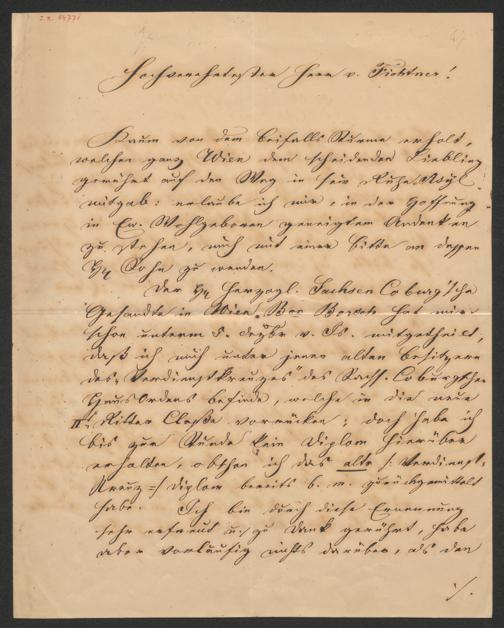 Hochverehrtester Herr v. Fichtner!
Kaum von dem Beifalls Sturme erholt,
welchen ganz Wien dem scheidenden Liebling
gerührt auf den Weg in sein Ruhe Asyl
mitgab: erlaube ich mir, in der Hoffnung
in Ew. Wohlgeboren geneigtem Andenken
zu stehen, mich mit einer Bitte an dessen
Sohn zu wenden.
Der Herzogl. Sachsen Coburg'sche
Gesandte in Wien, Bon hat mir
schon unterm 5. v. Js. mitgetheilt,
daß ich mich unter jenen alten Besitzern
des "Verdienstkreuzes" des Sachs. Coburgschen
Haus Ordens befinde, welche in die neue
II. Ritter Classe vorrücken; doch habe ich
bis zur Stunde kein Diplom hierüber
erhalten, obschon ich das alte /: Verdienst-
Kreuz :/ Diplom bereits b. m. zurückgemittelt
habe. Ich bin durch diese Ernennung
sehr erfreut u: zu Dank gerührt, habe
aber vorläufig nichts darüber, als den